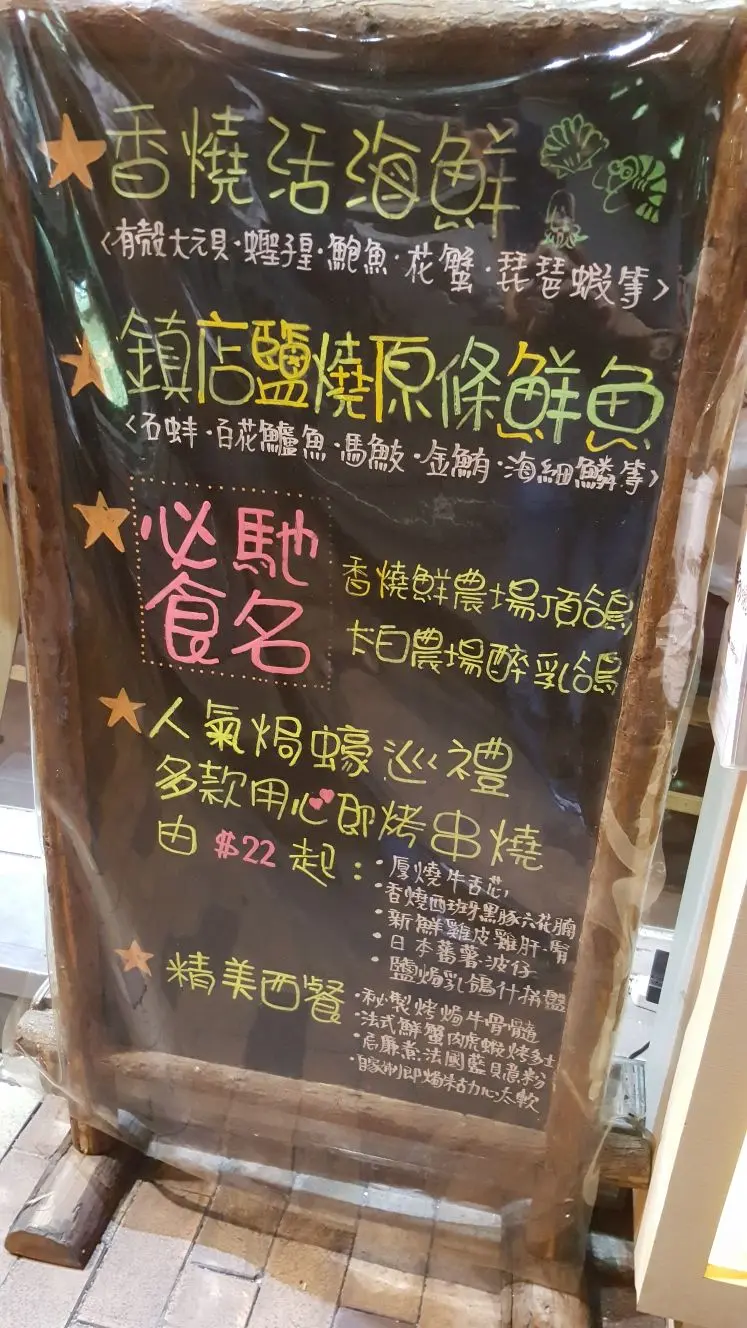 香燒活海鮮
<有殼大元貝·蟶子皇·鮑魚·花蟹·琵琶蝦等>
鎮店鹽燒原條鮮魚
<石蚌·百花鱸魚·馬鮁·金鮪·海細鱗等>
必馳
食名
香燒鮮農場頂鴿
太白農場醉乳鴿
人氣焗蠔巡禮
多款用心即烤串燒
由 $22 起:
·厚燒牛舌芯,
·香燒西班牙黑豚六花腩
·新鮮雞皮雞肝·腎
·日本蕃薯·波仔
·鹽焗乳鴿什拼盤
精美西餐
·秘製烤焗牛骨髓
·法式鮮蟹肉虎蝦烤多士
·忌廉煮法國藍貝意粉
·自家制即焗朱古力心太軟